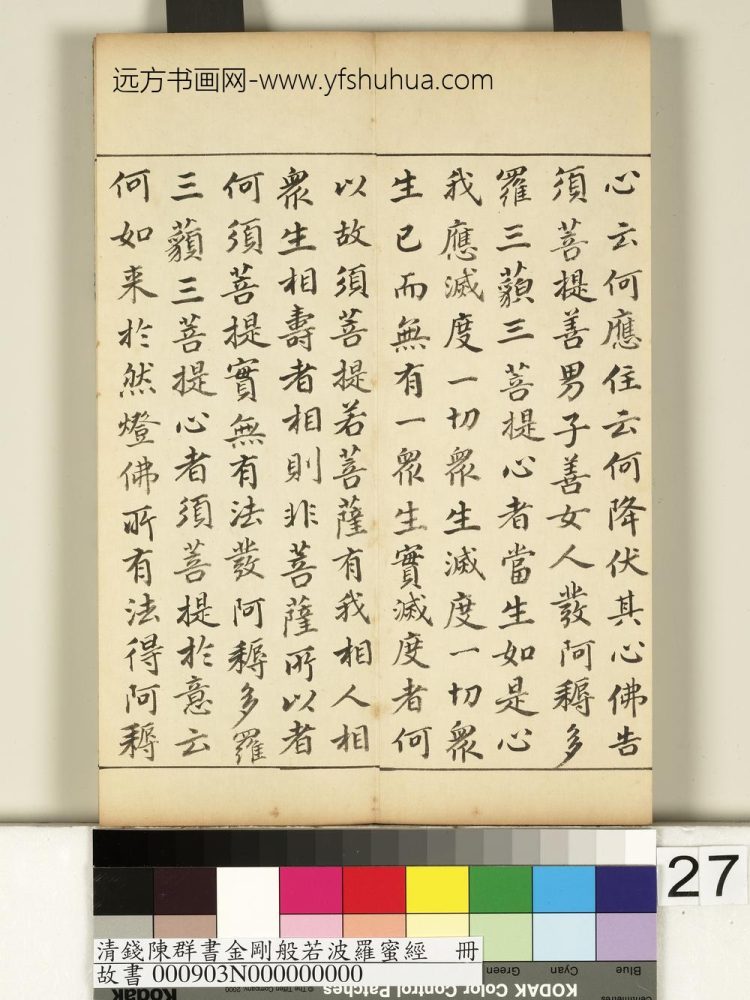 远方书画网-www.yfshuhua.com
心云何應住云何降伏其心佛告
須菩提善男子善女人發阿耨多
羅三藐三菩提心者當生如是心
我應滅度一切衆生滅度一切衆
生已而無有一衆生實滅度者何
以故須菩提若菩薩有我相人相
衆生相壽者相則非菩薩所以者
何須菩提實無有法發阿耨多羅
三藐三菩提心者須菩提於意云
何如来於然燈佛所有法得阿耨
27
清錢陳群書金剛般若波羅蜜經 冊
故書 000903N000000000
© The Tiffen Company, 2000
Green
Cyan
Blue
KODAK Color Control Patches
Kodak
Centimetres